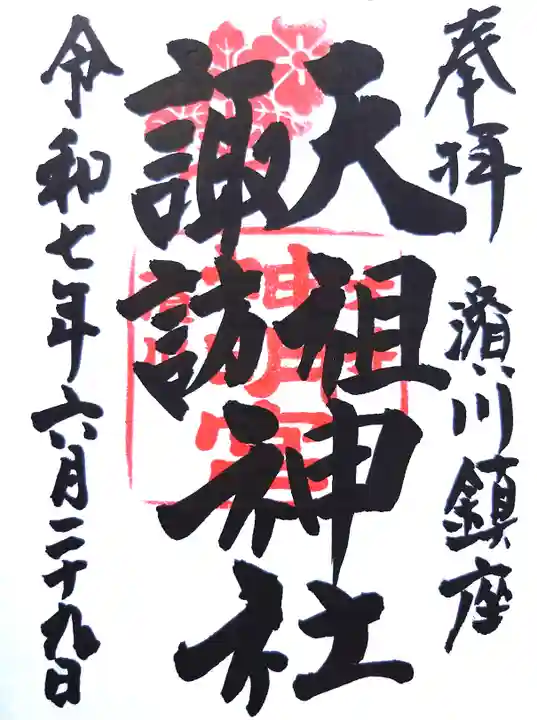 奉拝 濱川鎮座
天祖神社
諏訪神社
令和七年六月二十九日